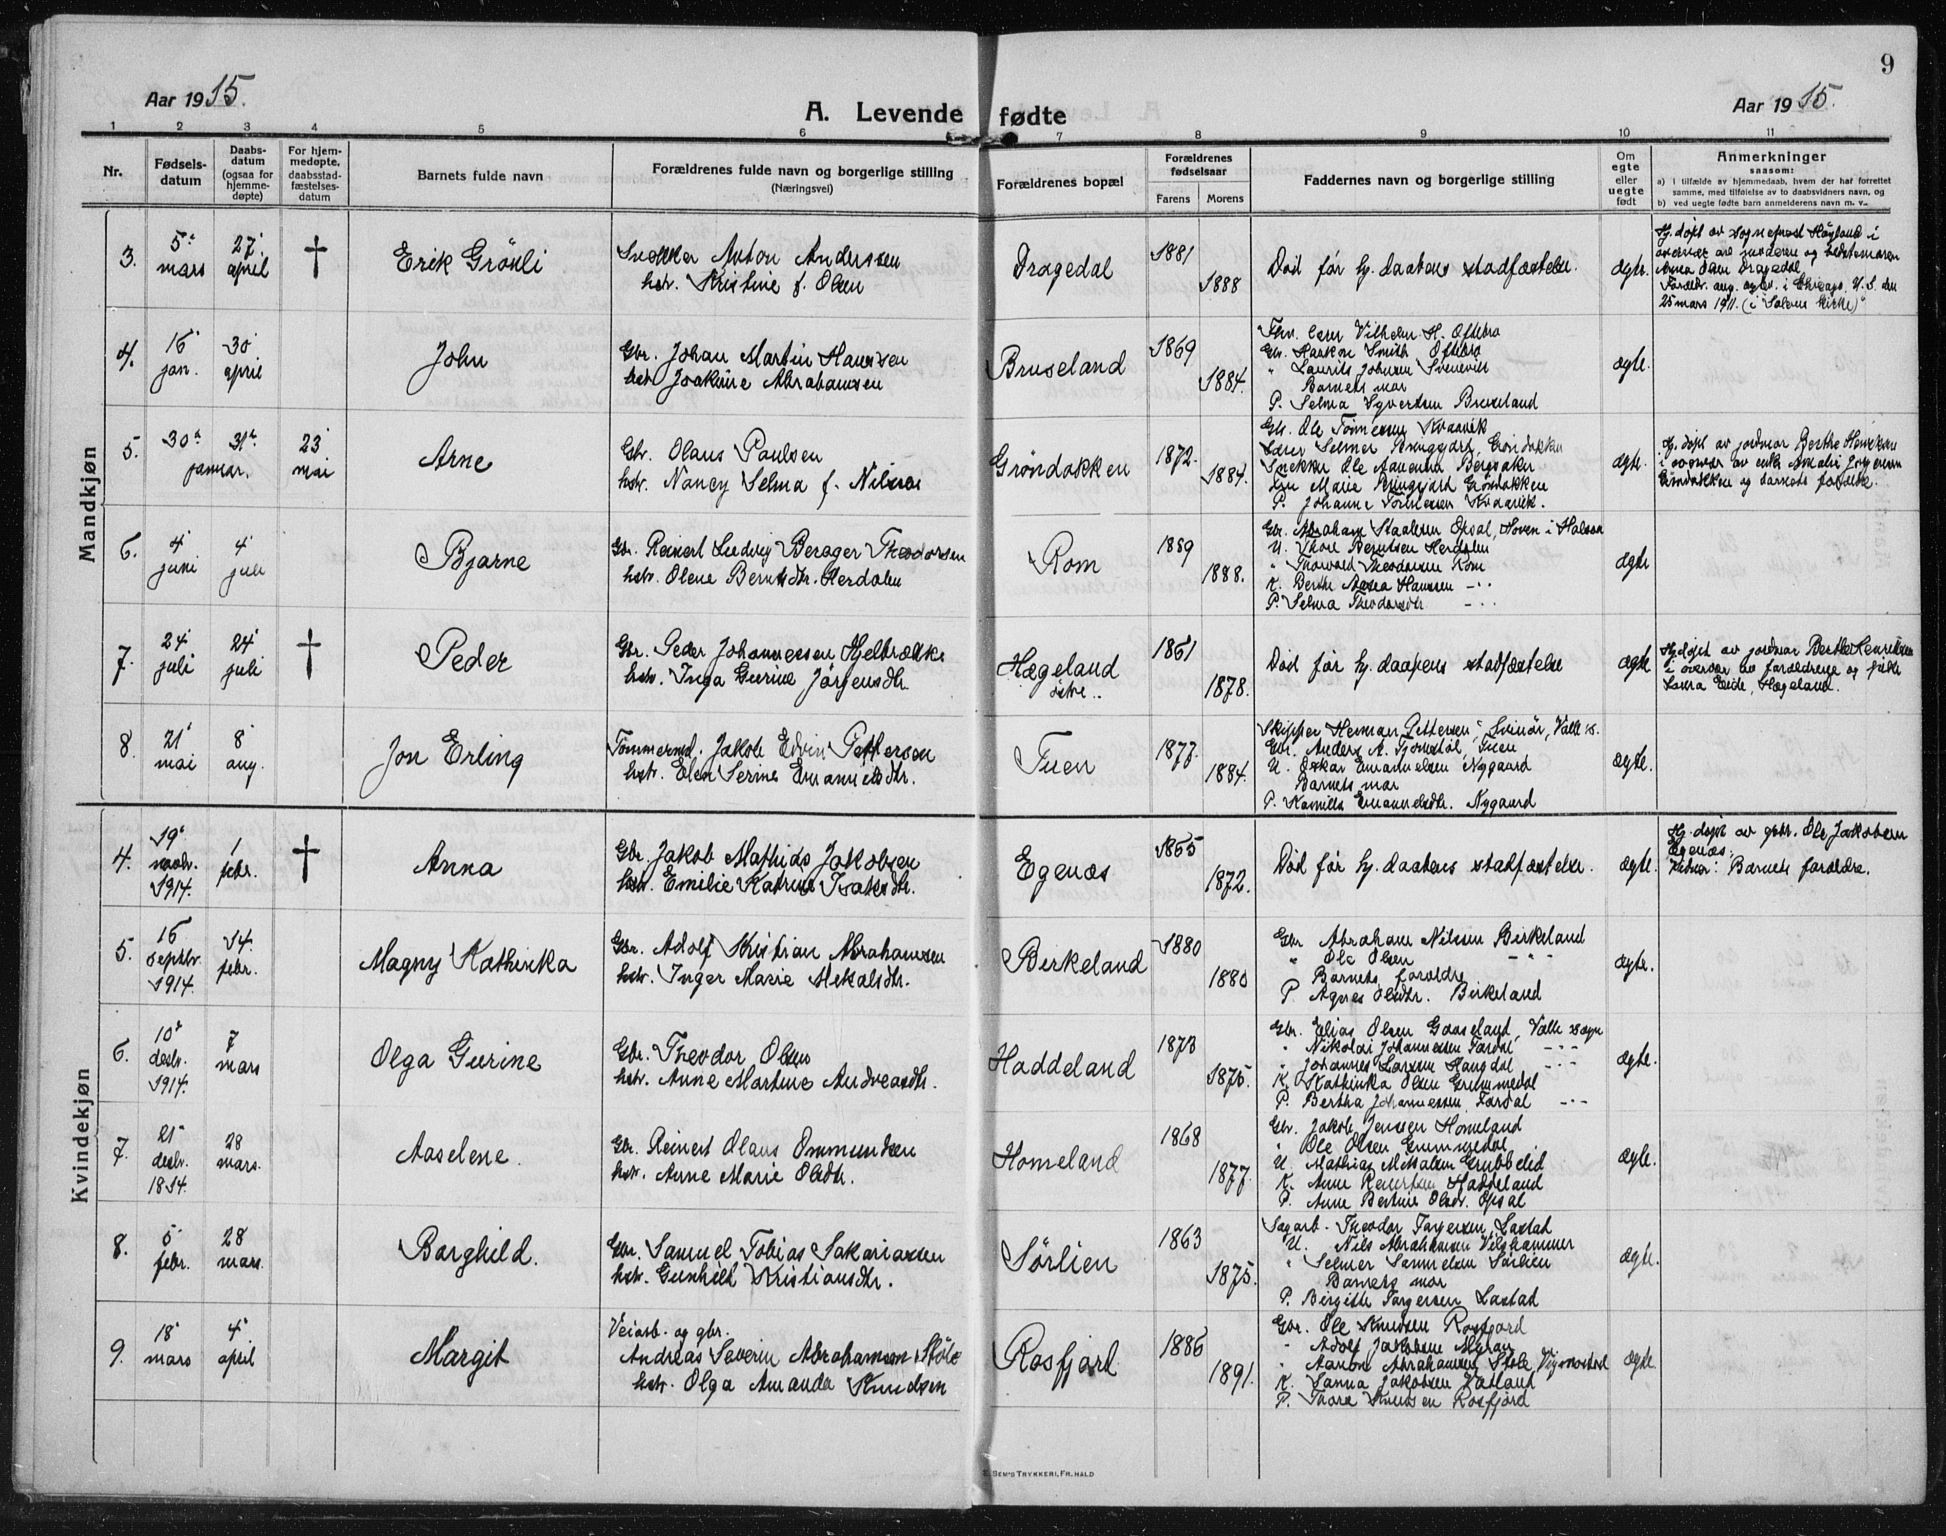 9
Aar 1915.
A. Levende fødte
Aar 1915.
1 2 3 4 5 6 7 8 9 10 11
Nr.
Fødsels-
datum
Daabs-
datum
(ogsaa for
hjemme-
døpte)
For hjem-
medøpte,
daabsstad-
fæstelses-
datum
Barnets fulde navn
Forældrenes fulde navn og borgerlige stilling
(Næringsvei)
Forældrenes bopæl
Forældrenes
fødselsaar
Farens Morens
Faddernes navn og borgerlige stilling
Om
egte
eller
uegte
født
Anmerkninger
saasom:
a) I tilfælde av hjemmedaab, hvem der har forrettet
samme, med tilføielse av to daabsvidners navn, og
b) ved uegte fødte barn anmelderens navn m. v.
Mandkjøn
3.
5
mars
27
april
†
Erik Grönli
Snekker Anton Anderssen
hstr. Kristine f. Olsen
Dragedal
1881
1888
Död för hj. daabens stadfæstelse.
ægte.
Hj. døpt av sogneprest Høyland i
Anna Olsen Dragedal
25 mars 1911. (i "Salem kirke)"
4.
16
jan.
30
april
John
Gbr. Johan Martin Hanssen
hstr. Joakine Abrahamsen
Bruseland
1869
1884.
Vilhelm H. Oftebro
Gbr. Haakon Smith Oftebro
" Laurits Johnsen Svenevik
Barnets mor
P. Selma Syvertsen Bruseland
ægte.
5.
30
31
januar.
23
mai
Arne
Gbr. Olaus Paulsen
hstr. Nancy Selma f. Nilsen
Gröndokken
1872.
1884.
Gbr. Ole Tönnessen Kvaavik
Snekker Ole
Marie Ringgård Gröndokken
P. Johanne Tönnessen Kvaavik.
ægte.
Hj. døpt av jordmor Berthe Henriksen
6.
4
juni
4
juli
Bjarne
Gbr. Reinert Ludvig Berager Theodorsen
hstr. Olene Berntsdtr. Herdalen
Rom
1889
1888.
Gbr. Abraham Staalesen Opsal, Hoven i Halsaa
U. Thore Berntsen Herdalen
" Thorvald Theodorsen Rom
K. Berthe Hanssen - " -
P. Selma Theodorsdtr. - " -
ægte
7.
24
juli
24
juli
†
Peder
Gbr. Peder Johannessen Hjelbrække
hstr. Inga Gurine Jörgensdtr.
Hægeland
östre..
1861
1878.
Död för hj. daapens stadfæstelse
ægte
Hj. døpt av jordmor Berthe Henriksen
i overvær av forældrene og frøken
Laura Eide, Hægeland.
8.
21
mai
8
aug.
Jon Erling
Tömmermd. Jakob Edvin Pettersen
hstr. Elen Serine Emanuelsdtr.
Tuen
1877.
1884.
Skipper Herman Pettersen, Svinör, Valle s.
Gbr. Anders A. Tjomstöl, Tuen
U. Oskar Emanuelsen Nygaard
Barnets mor
P. Kamilla Emanuelsdtr. Nygaard
ægte.
Kvindekjøn
4.
19
novbr.
1914.
1
febr.
†
Anna
Gbr. Jakob Mathias Jakobsen
hstr. Emilie Katrine Isaksdtr.
Egenæs
1865
1872.
Död för hj. daabens stadfæstelse.
ægte.
Hj. døpt av gbr. Ole Jakobsen
Egenæs.
Vidner: Barnets forældre.
5.
16
septbr.
1914.
14.
febr.
Magny Kathinka
Gbr. Adolf Kristian Abrahamsen
hstr. Inger Marie Mekalsdtr.
Birkeland
1880
1880
Gbr Abraham Nilsen Birkeland
" Ole Olsen - " -
Barnets forældre
P Agnes Olsdtr. Birkeland
ægte.
6.
10
desbr.
1914.
7
mars
Olga Gurine
Gbr. Theodor Olsen
hstr. Anne Martine Andreasdtr.
Haddeland
1873
1875.
Gbr. Elias Olsen Gaaseland, Valle sogn
" Nikolai Johannessen Fardal - " -
" Johannes Larsen Haugdal - " -
K. Kathinka Olsen Grummedal
P. Bertha Johannessen Fardal - " -
ægte.
7.
21
desbr.
1814.
28
mars.
Aaselene.
Gbr. Reinert Olaus Ommundsen
hstr. Anne Marie Olsdtr.
Homeland
1868
1877.
Gbr. Jakob Jenssen Homeland
" Ole Olsen Grummedal
U. Mathias Mikalsen Grubbeid
K. Anne Reiersen Haddeland
P. Anne Bertine Olsdr. Opsal
ægte.
8.
5
febr.
28
mars.
Borghild.
Gbr. Samuel Tobias Sakariassen
hstr. Gunhild Kristiansdtr.
Sörlien
1863
1875.
Sagarb. Theodor Torgersen, Lastad
U. Nils Abrahamsen Vigshammer
" Selmer Samuelsen Sörlien
Barnets mor
P. Birgitte Torgersen Lastad
ægte.
9.
18
mars
4
april
Margit
Veiarb. og gbr.
Andreas Severin Abrahamsen Støle
hstr. Olga Amanda Knudsen
Rosfjord
1886
1891.
Gbr. Ole Knudsen Rosfjord
" Adolf Jakobsen Myran
" Aanon Abrahamsen Støle Vigmostad
K. Sanna Jakobsen Vatland
P. Thora Knudsen Rosfjord
ægte.
E. SEM'S TRYKKERI, FR.HALD